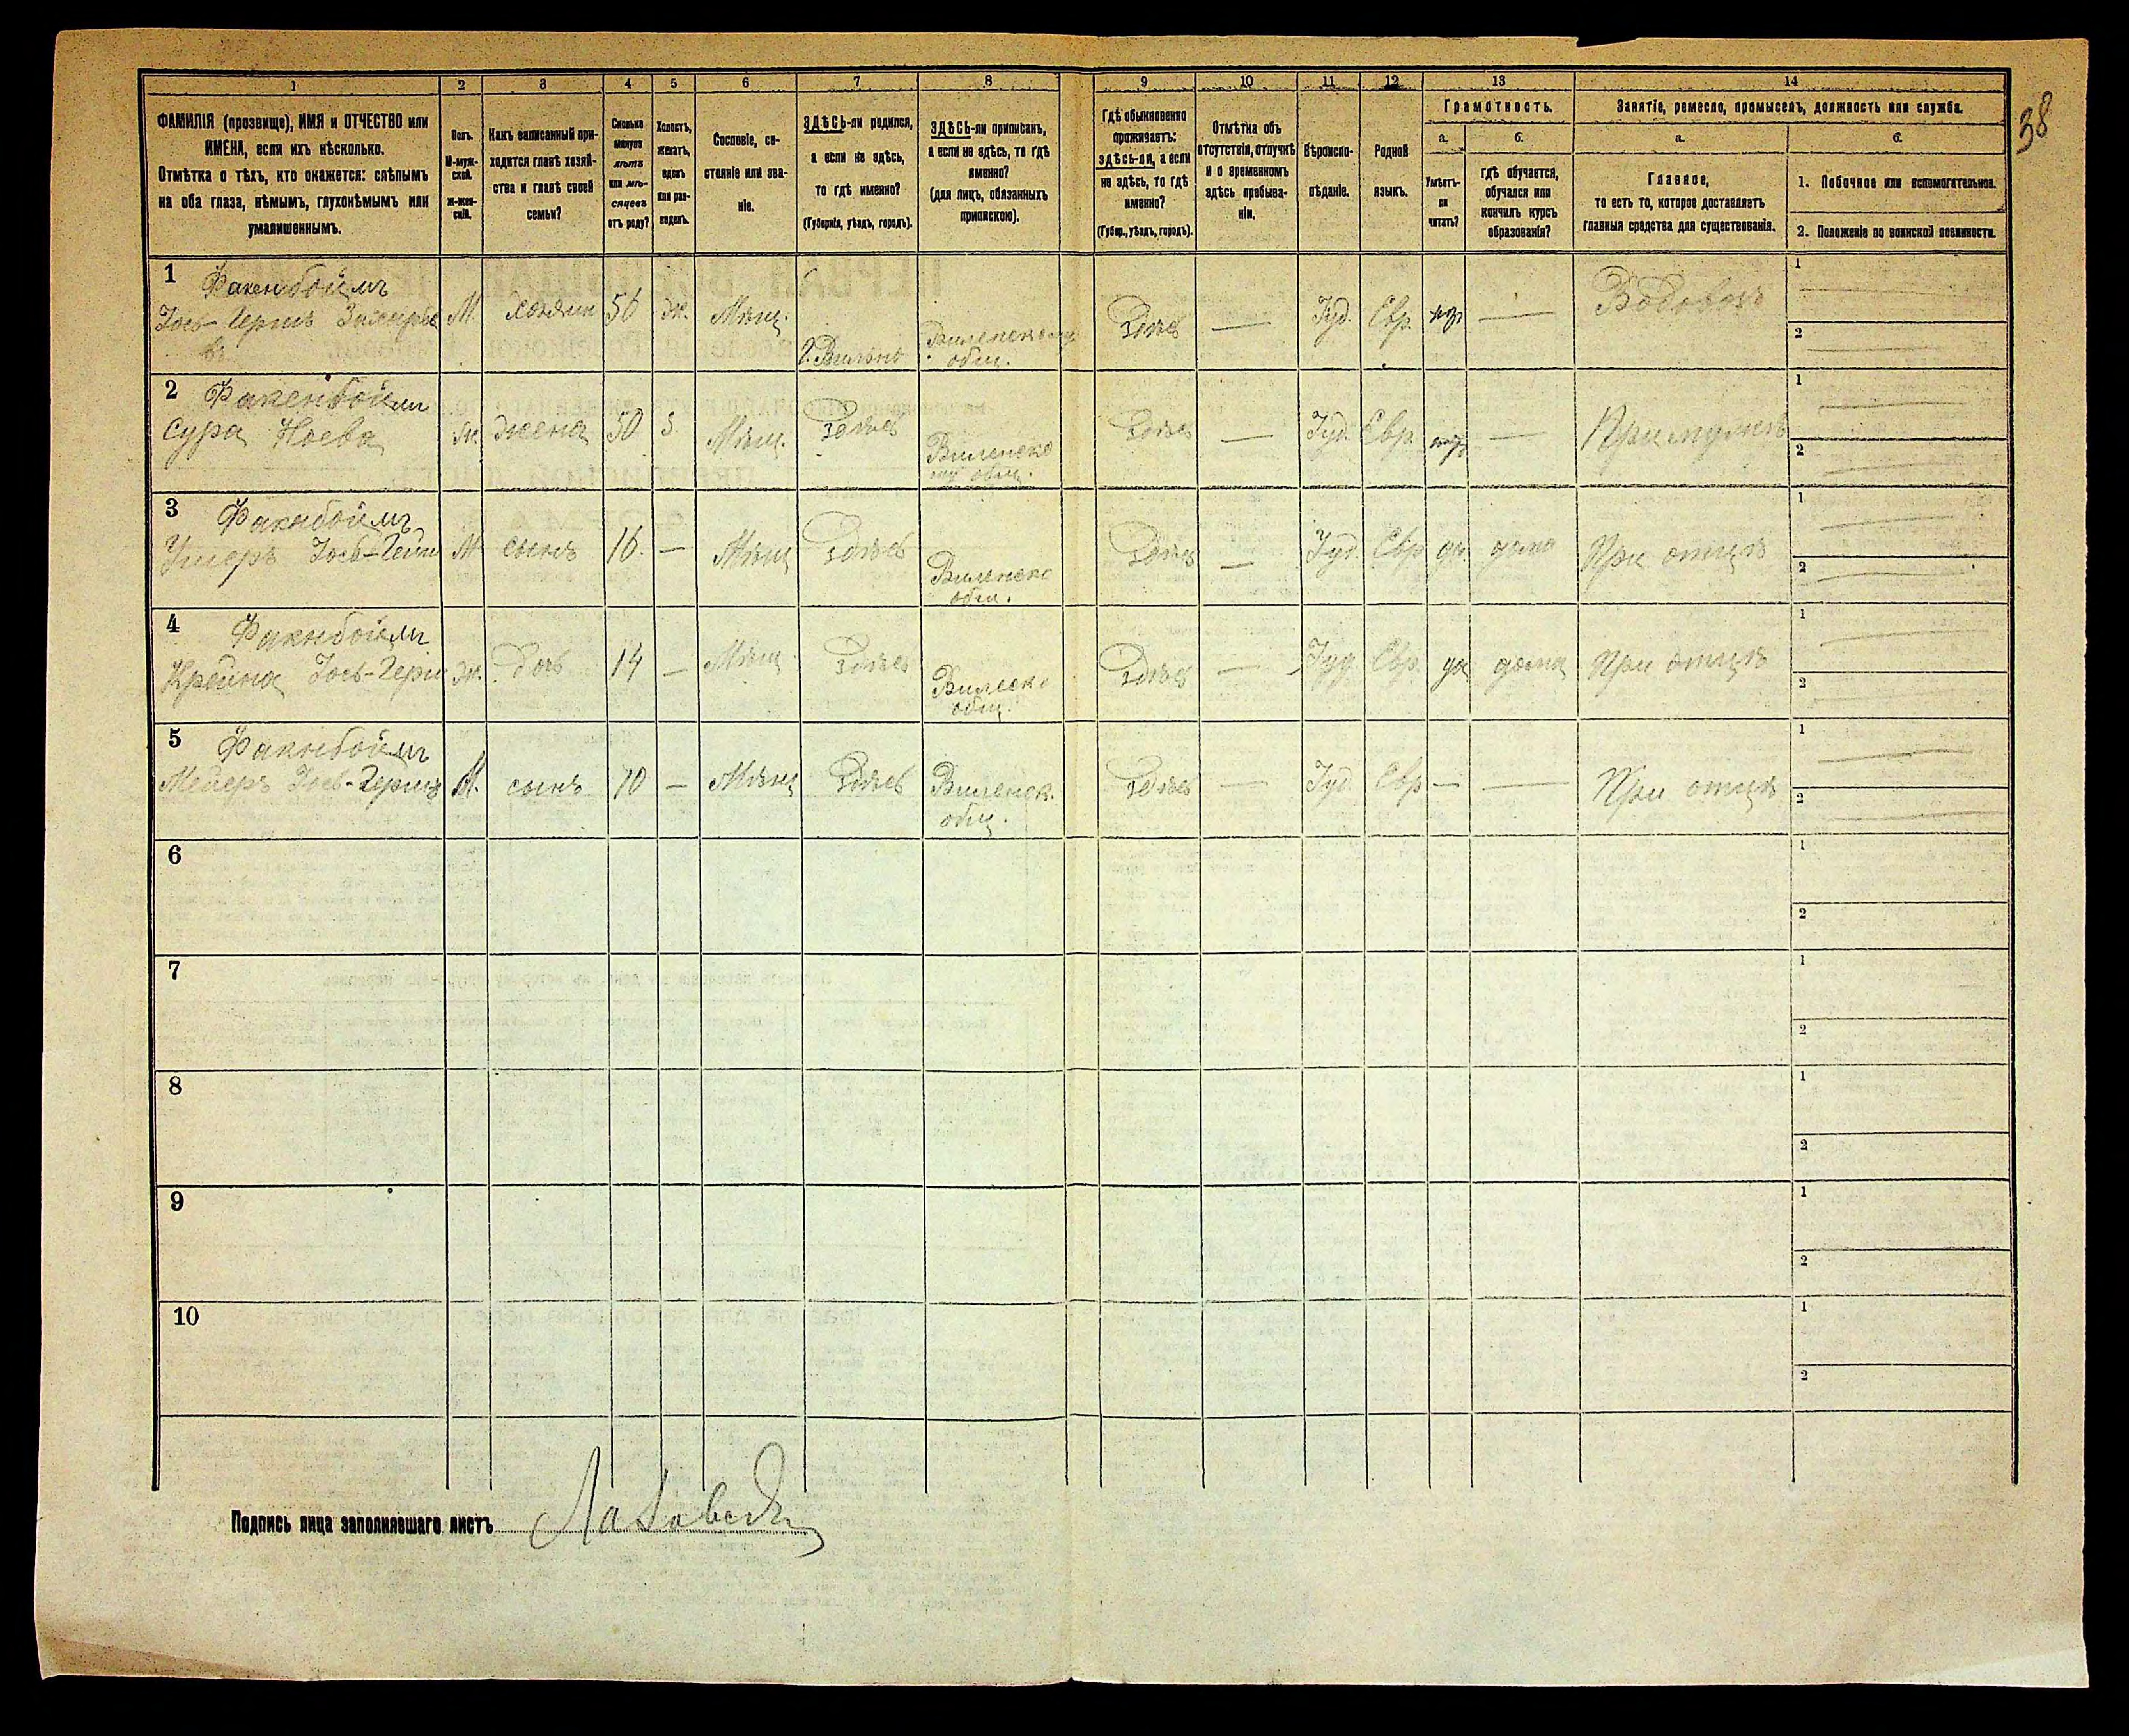 38
1 2 3 4 5 6 7 8 9 10 11 12 13 14
ФАМИЛІЯ (прозвище), ИМЯ и ОТЧЕСТВО или
ИМЕНА, если ихъ нѣсколько.
Отмѣтка о тѣхъ, кто окажется: слѣпымъ
на оба глаза, нѣмымъ, глухонѣмымъ или
умалишеннымъ.
Полъ.
М-муж-
ской.
ж-жен-
скій.
Какъ записанный при-
ходится главѣ хозяй-
ства и главѣ своей
семьи?
Сколько
минуло
лѣтъ
или мѣ-
сяцевъ
отъ роду?
Холостъ,
женатъ,
вдовъ
или раз-
веденъ.
Сословіе, со-
стояніе или зва-
ніе.
ЗДѢСЬ-ли родился,
а если не здѣсь,
то гдѣ именно?
(Губернія, уѣздъ, городъ).
ЗДѢСЬ-ли приписанъ,
а если не здѣсь, то гдѣ
именно?
(для лицъ, обязанныхъ
припискою).
Гдѣ обыкновенно
проживаетъ:
здѣсь-ли, а если
не здѣсь, то гдѣ
именно?
(Губер., уѣздъ, городъ).
Отмѣтка объ
отсутствіи, отлучкѣ
и о временномъ
здѣсь пребыва-
ніи.
Вѣроиспо-
вѣданіе.
Родной
языкъ.
Грамотность.
а.
Умѣетъ-
ли
читать?
б.
гдѣ обучается,
обучался или
кончилъ курсъ
образованія?
Занятіе, ремесло, промыселъ, должность или служба.
а.
Главное,
то есть то, которое доставляетъ
главныя средства для существованія.
б.
1. Побочное или вспомогательное.
2. Положеніе по воинской повинности.
1 Факенбоймъ
М. хозяин 56 ж. Мѣщ. г. Вильнѣ Виленскому общ. Здѣсь — Іуд. Евр. — Водовозъ 1 2
2 Факенбоймъ
Сура Ноева ж. жена 50 з. Мѣщ. Здѣсь Виленско
му общ. Здѣсь — Іуд. Евр. — При мужѣ 1 2
3 Факнбоймъ
М сынъ 16. — Мѣщ Здѣсь Виленско
общ. Здѣсь — Іуд. Евр да дома При отцѣ 1 2
4 Факнбоймъ
Крейна Іось-Герш ж. дочь 14 — Мѣщ. Здѣсь Виленско
общ. Здѣсь — Іуд. Евр. да дома При отцѣ 1 2
5 Факнбоймъ
Мейеръ Іосъ-Гершъ М. сынъ 10 — Мѣщ Здѣсь Виленск.
общ. Здѣсь — Іуд Евр — — При отцѣ 1 2
6 1 2
7 1 2
8 1 2
9 1 2
10 1 2
Подпись лица заполнявшаго листъ